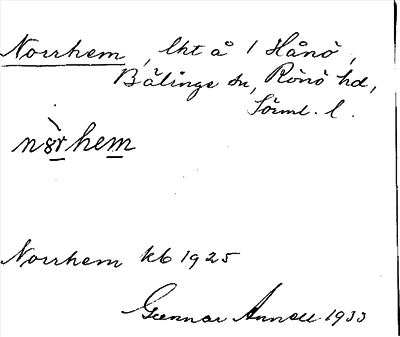 Norrhem, lht å 1 Hånö,
Bälinge sn, Rönö hd,
Sörml. l.
nòrhem
Norrhem kb 1925
Gunnar Annell 1933